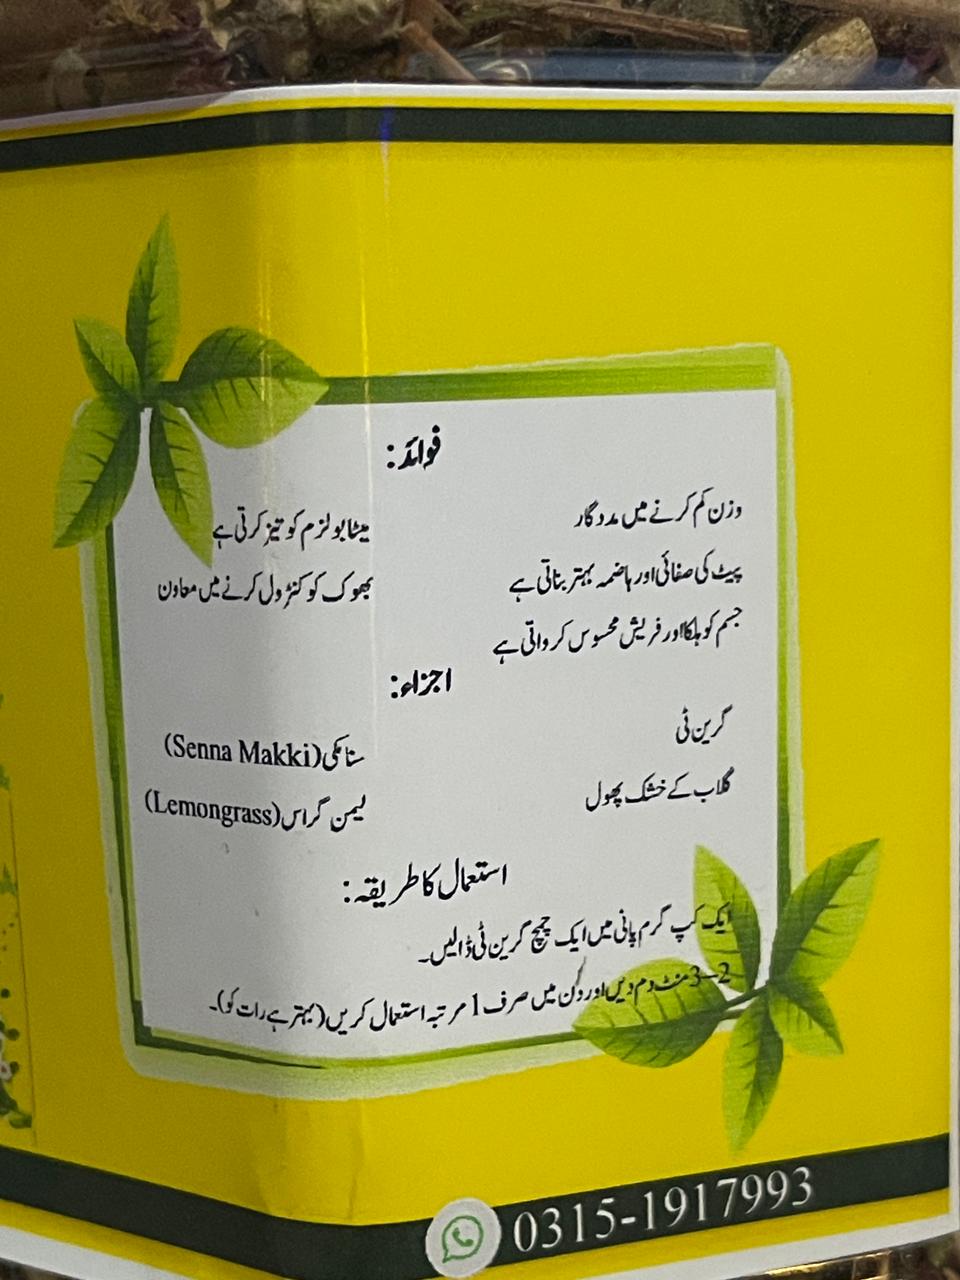 فوائد:
وزن کم کرنے میں مددگار
میٹابولزم کو تیز کرتی ہے
پیٹ کی صفائی اور ہاضمہ بہتر بناتی ہے
بھوک کو کنٹرول کرنے میں معاون
جسم کو ہلکا اور فریش محسوس کرواتی ہے
اجزاء:
گرین ٹی
سنا مکی (Senna Makki)
گلاب کے خشک پھول
لیمن گراس (Lemongrass)
استعمال کا طریقہ:
ایک کپ گرم پانی میں ایک چمچ گرین ٹی ڈالیں۔
2–3 منٹ دم دیں اور دن میں صرف 1 مرتبہ استعمال کریں (بہتر ہے رات کو)۔
0315-1917993